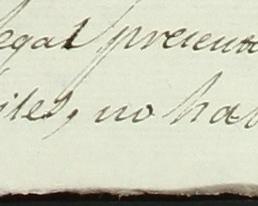 egal presente
iles, no hab